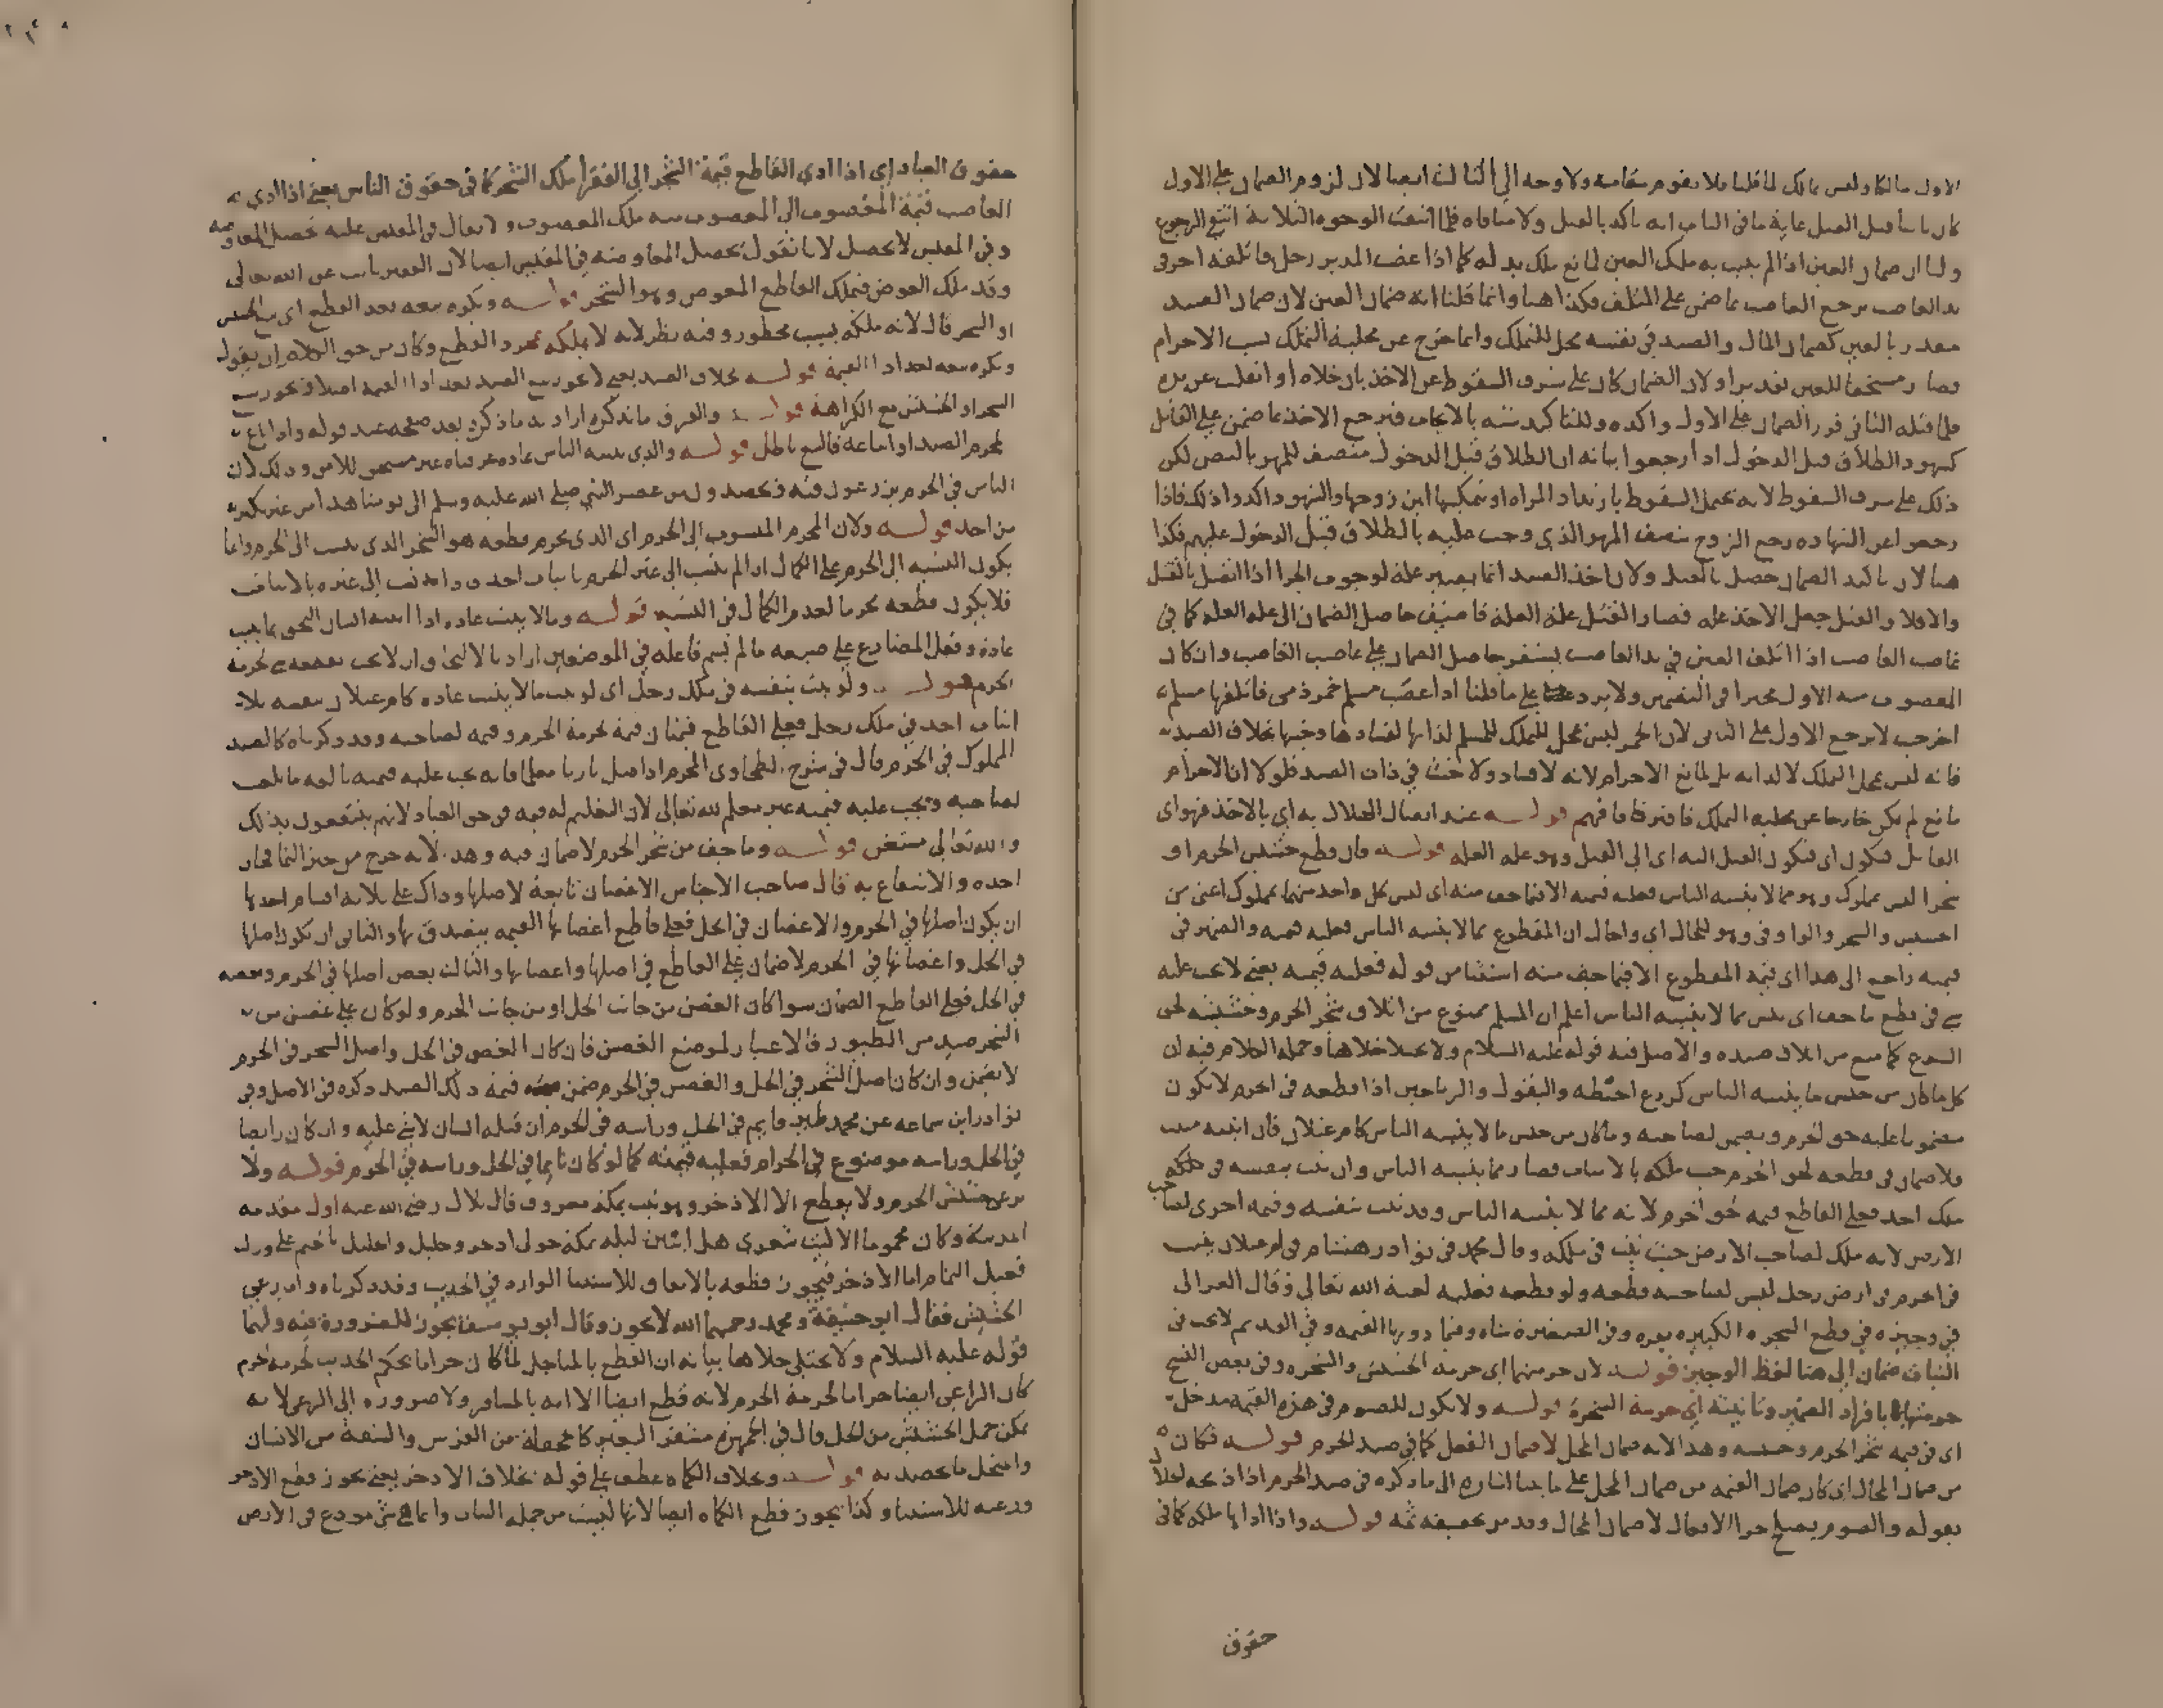 الاول مالكا وليس بمالك لما قلنا فلا يقوم مقامه ولا وجه الى الثالث ايضا لان لزوم الضمان على الاول
كان ثابتا قبل القتل غاية ما في الباب انه تاكد بالقتل ولا منافاه فلما انتفت الوجوه الثلاثة انتفى الرجوع
ولنا ان ضمان العين اذا لم يجب به ملك العين لمانع ملك بدله كما اذا غصب المدبر رجل فاتلفه اخر في
يد الغاصب يرجع الغاصب بما ضمن على المتلف فكذا هنا وانما قلنا انه ضمان العين لان ضمان الصيد
مقدر بالعين كضمان المال والصيد في نفسه محل للتملك وانما خرج عن محلية التملك بسبب الاحرام
فصار مستحقا للعين تقديرا ولان الضمان كان على شرف السقوط عن الاخذ بان خلاه او انفلت عن يده
فلما قتله الثاني قرر الضمان على الاول واكده وللتاكيد شبه بالايجاب فيرجع الاخذ بما ضمن على القاتل
كشهود الطلاق قبل الدخول اذا رجعوا بيانه ان الطلاق قبل الدخول منصف للمهر بالنص لكن
ذلك على شرف السقوط لانه يحتمل السقوط بارتداد المراه او تمكينها ابن زوجها والشهود اكدوا ذلك فاذا
رجعوا عن الشهاده رجع الزوج بنصف المهر الذي وجب عليه بالطلاق قبل الدخول عليهم فكذا
هنا لان تاكيد الضمان حصل بالقتل ولان اخذ الصيد انما يصير علة لوجوب الجزا اذا اتصل بالقتل
والا فلا والقتل جعل الاخذ علة فصار القتل علة العلة فاضيف حاصل الضمان الى علة العلة كما في
غاصب الغاصب اذا اتلف العين في يد الغاصب يستقر حاصل الضمان على غاصب الغاصب وان كان
المغصوب منه الاول مخيرا في التضمين ولا يرد على ما قلنا اذا غصب مسلم خمر ذمي فاتلفها مسلم
اخر حيث لا يرجع الاول على الثاني لان الخمر ليس بمحل للتملك للمسلم لذاتها لفسادها وخبثها بخلاف الصيد
فانه ليس بمحل التملك لا لذاته بل لمانع الاحرام لانه لا فساد ولا خبث في ذات الصيد فلولا ان الاحرام
مانع لم يكن خارجا عن محلية التملك فافترقا فافهم قولـــه عند اتصال الهلاك به اي بالاخذ فهو اي
القاتل فيكون اي فيكون القتل البه اي الى القتل وهو علة العلة قولـــه فان قطع حشيش الحرم او
شجرا ليس بمملوك وهو مما لا ينبته الناس فعليه قيمته الا فيما جف منه اي ليس كل واحد منهما بمملوك اعني من
الحشيش والشجر والواو في وهو للحال اي والحال ان المقطوع مما لا ينبته الناس فعليه قيمته والضمير في
قيمته راجع الى هذا اي قيمة المقطوع الا فيما جف منه استثنا من قوله فعليه قيمته يعني لا يجب عليه
شي في قطع ما جف اي يبس مما لا ينبته الناس اعلم ان المسلم ممنوع من اتلاف شجر الحرم وحشيشه لحق
الشرع كما منع من اتلاف صيده والاصل فيه قوله عليه السلام ولا يختلا خلاها وجملة الكلام فيه ان
كل ما كان من جنس ما ينبته الناس كزرع الحنطه والبقول والرياحين اذا قطعه في الحرم لا يكون
مضمونا عليه حق الحرم ويضمن لصاحبه وما كان من جنس ما لا ينبته الناس كام غيلان فان انبته منبت
فلا ضمان في قطعه لحق الحرم حيث ملكه بالانبات فصار مما ينبته الناس وان نبت بنفسه في ملكه
ملك احد فعلى القاطع قيمه لحق الحرم لانه مما لا ينبته الناس وقد نبت بنفسه وقيمه اخرى لصاحب
الارض لانه ملك لصاحب الارض حيث نبت في ملكه وقال محمد في نوادر هشام في ام غيلان ينبت
في الحرم في ارض رجل ليس لصاحبه قطعه ولو قطعه فعليه لعنة الله تعالى وقال الغزالي
في وجيزه في قطع الشجرة الكبيره بقره وفي الصغيرة شاه وفيما دونها القيمه وفي القديم لا يجب في
النبات ضمان الى هنا لفظ الوجيز قولـــه لان حرمتهما اي حرمة الحشيش والشجره وفي بعض النسخ
حرمتها بافراد الضمير وتانيثه اي حرمة الشجرة قولـــه ولا يكون للصوم في هذه القيمه مدخل
اي في قيمه شجر الحرم وحشيشه وهذا لانه ضمان المحل لا ضمان الفعل كما في صيد الحرم قولـــه فكان
من ضمان المحال اي كان ضمان القيمه من ضمان المحل على ما بينا اشاره الى ما ذكره في صيد الحرم اذا ذبحه الحلال
بقوله والصوم يصلح جزا الافعال لا ضمان المحال وقد مر تحقيقه ثمه قولـــه واذا اداها ملكه كما في
حقوق
حقوق العباد اي اذا ادى القاطع قيمة الشجر الى الفقرا ملك الشجر كما في حقوق الناس يعني اذا ادى
الغاصب قيمة المغصوب الى المغصوب منه ملك المغصوب ولا يقال في المقيس عليه تحصل المعاوضه
وفي المقيس لا تحصل لانا نقول تحصل المعاوضه في المقيس ايضا لان الفقير نايب عن الله تعالى
وقد ملك العوض فيملك القاطع المعوض وهو الشجر قولـــه ويكره بيعه بعد القطع اي بيع الحشيش
او الشجر قال لانه ملكه بسبب محظور وفيه نظر لانه لا يملكه بمجرد القطع وكان من حق الكلام ان يقول
ويكره بيعه بعد ادا القيمة قولـــه بخلاف الصيد يعني لا يجوز بيع الصيد بعد ادا القيمه اصلا ويجوز بيع
الشجر او الحشيش مع الكراهة قولـــه والفرق ما نذكره اراد به ما ذكره بعد صفحه عند قوله واذا باع
المحرم الصيد او ابتاعه فالبيع باطل قولـــه والذي ينبته الناس عاده عرفناه غير مستحق للامن وذلك لان
الناس في الحرم يزرعون فيه ويحصدون من عصر النبي صلى الله عليه وسلم الى يومنا هذا من غير نكير
من احد قولـــه ولان المحرم المنسوب الى الحرم اي الذي يحرم قطعه هو الشجر الذي ينسب الى الحرم وانما
يكون النسبه الى الحرم على الكمال اذا لم ينسب الى غير الحرم بانبات احد فاذا نسب الى غيره بالانبات
فلا يكون قطعه محرما لعدم الكمال في النسبه قولـــه وما لا ينبت عاده اذا انبته انسان التحق بما ينبت
عادة وفعل المضارع على صيغه ما لم يسم فاعله في الموضعين
الحرم قولـــه ولو نبت بنفسه في ملك رجل اي لو نبت ما لا ينبت عاده كام غيلان بنفسه بلا
انبات احد في ملك رجل فعلى القاطع قيمتان قيمة لحرمة الحرم وقيمه لصاحبه وقد ذكرناه كالصيد
المملوك في الحرم قال في شرح الطحاوي المحرم اذا قتل بازيا معلما فانه يجب عليه قيمته بالغه ما بلغت
لصاحبه ويجب عليه قيمته غير معلم لله تعالى لان التعليم له قيمه في حق العباد لانهم ينتفعون بذلك
والله تعالى مستغن قولـــه وما جف من شجر الحرم لا ضمان فيه وهذا لانه خرج من حيز النما فجاز
اخذه والانتفاع به قال صاحب الاجناس الاغصان تابعة لاصلها وذاك على ثلاثه اقسام احدها
ان يكون اصلها في الحرم والاغصان في الحل فعلى قاطع اغصانها القيمه يتصدق بها والثاني ان تكون اصلها
في الحل واغصانها في الحرم لا ضمان على القاطع في اصلها واغصانها والثالث بعض اصلها في الحرم وبعضه
في الحل فعلى القاطع الضمان سوا كان الغصن من جانب الحل او من جانب الحرم ولو كان على غصن من
الشجر صيد من الطيور فالاعتبار لموضع الغصن فان كان الغصن في الحل واصل الشجر في الحرم
لا يضمن وان كان اصل الشجر في الحل والغصن في الحرم ضمن قيمة ذلك الصيد ذكره في الاصل وفي
نوادر ابن سماعه عن محمد طير قايم في الحل وراسه في الحرم ان قتله انسان لا شي عليه وان كان رابضا
في الحل وراسه موضوع في الحرام فعليه قيمته كما لو كان نايما في الحل وراسه في الحرم قولـــه ولا
يرعى حشيش الحرم ولا يقطع الا الاذخر وهو نبت بمكة معروف قال بلال رضي الله عنه اول مقدمه
المدينة وكان محموما الا ليت شعري هل ابيتن ليلة بمكة حولي اذخر وجليل والجليل
فقيل الثمام اما الاذخر فيجوز قطعه بالاتفاق للاستثنا الوارد في الحديث وقد ذكرناه واما رعي
الحشيش فقال ابو حنيفة ومحمد رحمهما الله لا يجوز وقال ابو يوسف يجوز للضرورة فيه ولهما
قوله عليه السلام ولا يختلى خلاها بيانه ان القطع بالمناجل لما كان حراما بحكم الحديث لحرمة الحرم
كان الراعي ايضا حراما لحرمة الحرم لانه قطع ايضا الا انه بالمشافر ولا ضروره الى الرعي لانه
يمكن حمل الحشيش من الحل قال في الجمهرة مشفر البعير كالجحفلة من الفرس والشفة من الانسان
والمنجل ما يحصد به قولـــه وبخلاف الكماه عطف على قوله بخلاف الاذخر يعني يجوز قطع الاذخر
ورعيه للاستثنا وكذا يجوز قطع الكماه ايضا لانها ليست من جملة النبات وانما هي شي مودع في الارض